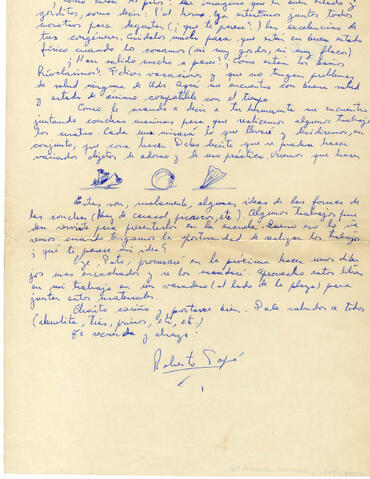 gorditos, como lejía? ¿Y el horno? Ya estaremos juntos todos
nosotros para degustar (¿qué te parece?) las excelencias de
tus Cuídalos mucho para que estén en buen estado
físico cuando los comamos (ni muy gordos, ni muy flacos)
¿Han salido mucho a pasear? ¿Cómo están los baños
Felices vacaciones y que no tengan problemas
de salud ninguno de Uds. Aquí me encuentro con buena salud
y estado de ánimo compatible con el tiempo
Como le mandé a decir a tu hermanita me encuentro
juntando conchas marinas para que realicemos algunos trabajos
los cuatro. Cada uno mirará lo que llevaré y decidiremos, en
conjunto, qué cosa hacer. Debo decirte que se pueden hacer
variados objetos de adorno y de uso práctico. Veremos qué hacer
Estas son, malamente, algunas ideas de las formas de
las conchas (hay de caracol, picorocos, etc.) Algunos trabajos pue-
den servirte para presentarlos en la escuela. Bueno eso lo ve-
remos cuando tengamos la oportunidad de realizar los trabajos
¿qué te parece mi idea?
Oye, Pato, procuraré en la próxima hacer unos dibu-
jos más encachados y se los mandaré. Aprovecho estos días
en mi trabajo en un varadero (al lado de la playa) para
juntar estos materiales.
Chaito cariño y portarse bien. Dale saludos a todos
(abuelita, tíos, primos, etc, etc.)
Te recuerda y abraza
Roberto Papá